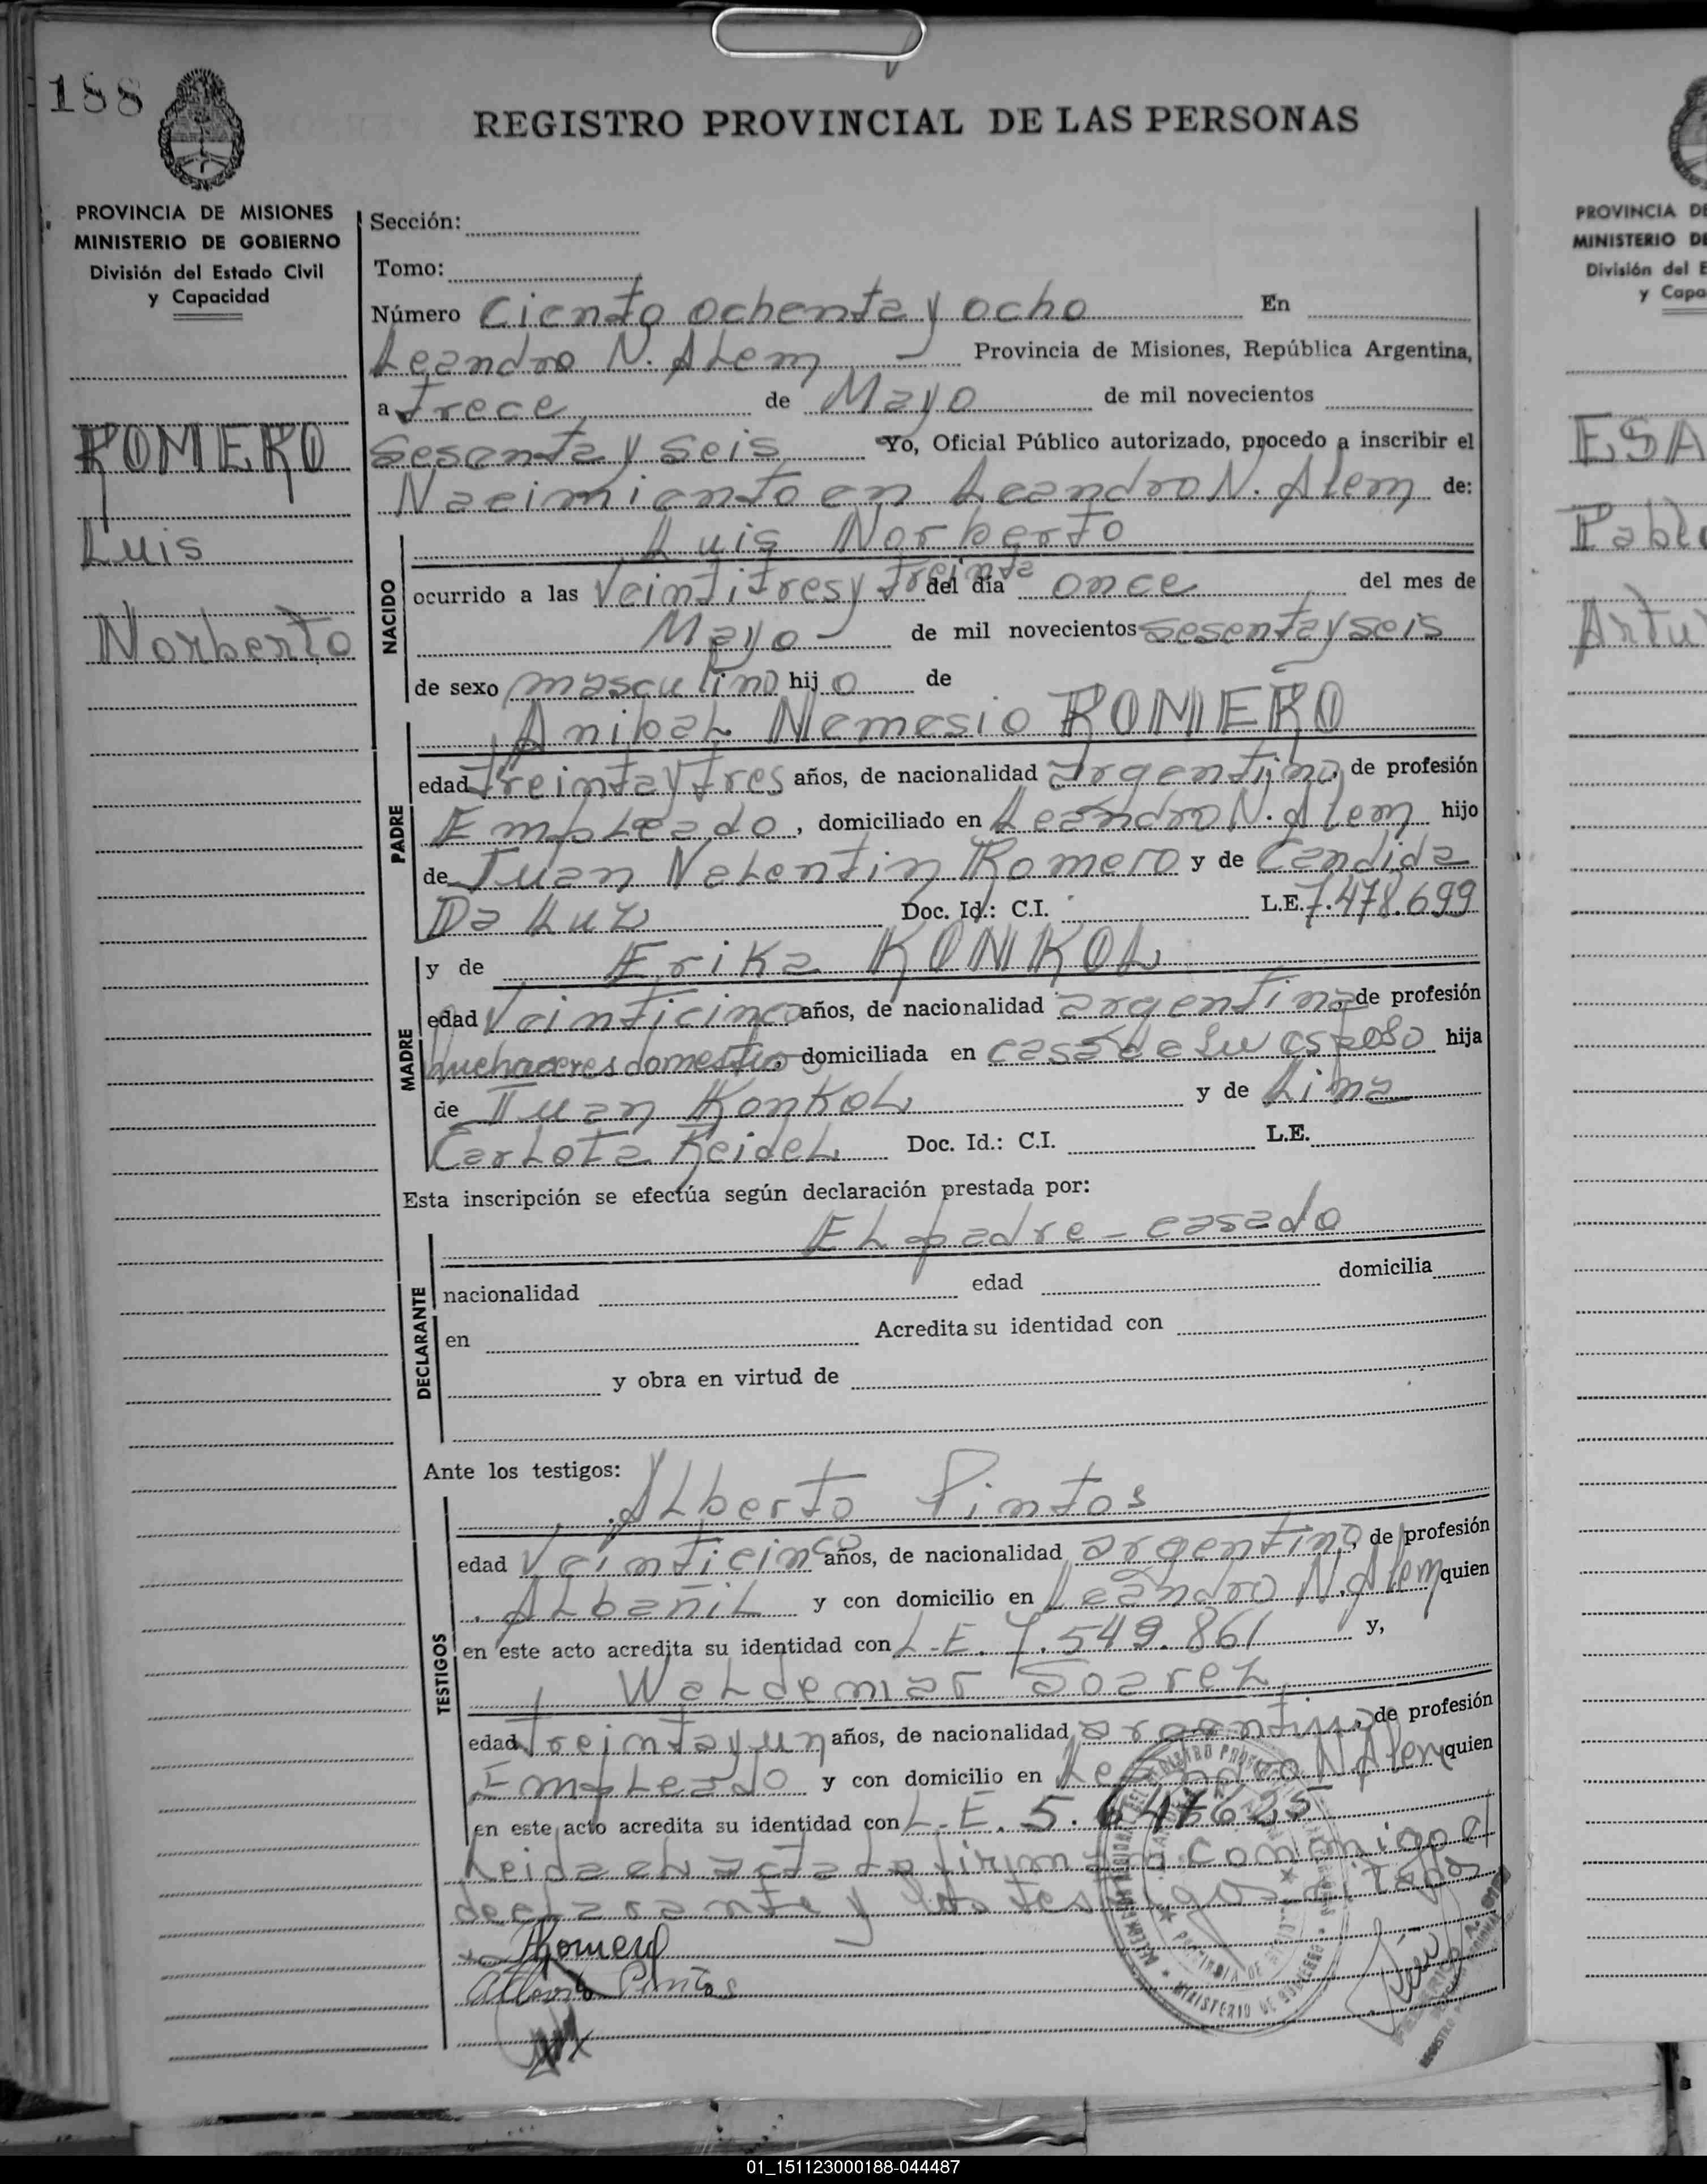 188
REGISTRO PROVINCIAL DE LAS PERSONAS
PROVINCIA DE MISIONES
MINISTERIO DE GOBIERNO
División del Estado Civil
y Capacidad
ROMERO
Luis
Norberto
Sección:
Tomo:
Número Ciento ochenta y ocho En
Leandro N. Alem — Provincia de Misiones, República Argentina,
a trece de Mayo de mil novecientos
sesenta y seis Yo, Oficial Público autorizado, procedo a inscribir el
Nacimiento en Leandro N. Alem de:
NACIDO
Luis Norberto
ocurrido a las Veintitres y treinta del día once del mes de
Mayo — de mil novecientos sesenta y seis
de sexo masculino hijo de
PADRE
Anibal Nemesio ROMERO
edad treinta y tres años, de nacionalidad argentino, de profesión
Empleado, domiciliado en Leandro N. Alem hijo
de Juan Valentin Romero y de Candida
Da Luz Doc. Id.: C.I. L.E. 7.478.699
MADRE
y de Erika KONKOL
edad Veinticinco años, de nacionalidad argentina de profesión
quehaceres domestico, domiciliada en casa de su esposo hija
de Juan Konkol y de Lina
Carlota Reidel Doc. Id.: C.I. L.E.
Esta inscripción se efectúa según declaración prestada por:
DECLARANTE
El padre - casado
nacionalidad edad domicilia
en Acredita su identidad con
y obra en virtud de
Ante los testigos:
TESTIGOS
Alberto Pintos
edad Veinticinco años, de nacionalidad argentino, de profesión
Albañil y con domicilio en Leandro N. Alem quien
en este acto acredita su identidad con L.E. 7.549.861 y,
Waldemar Soarez
edad treinta y un años, de nacionalidad argentino, de profesión
Empleado y con domicilio en Leandro N Alem quien
en este acto acredita su identidad con L.E. 5.647625
Leida el acta la firman conmigo el
declarante y los testigos citados
Romero
Alberto Pintos
MINISTERIO DE GOBIERNO
PROVINCIA DE
PROVINCIA DE
MINISTERIO DE
División del E
y Capa
ESA
Pablo
Artu
01_151123000188-044487